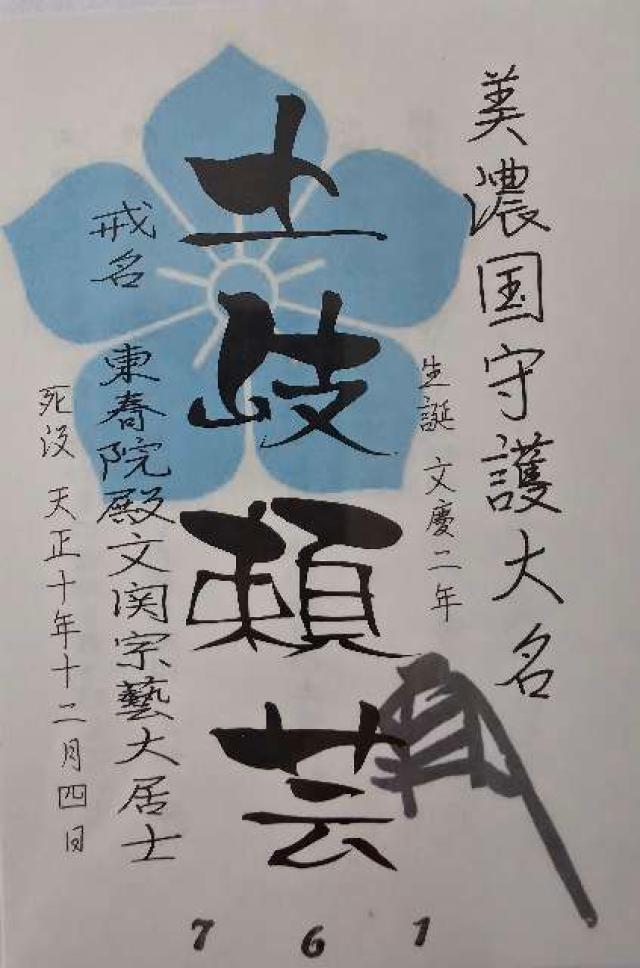 美濃国守護大名
生誕 文慶二年
土岐頼芸
戒名 東春院殿文関宗藝大居士
死没 天正十年十二月四日
7 6 1